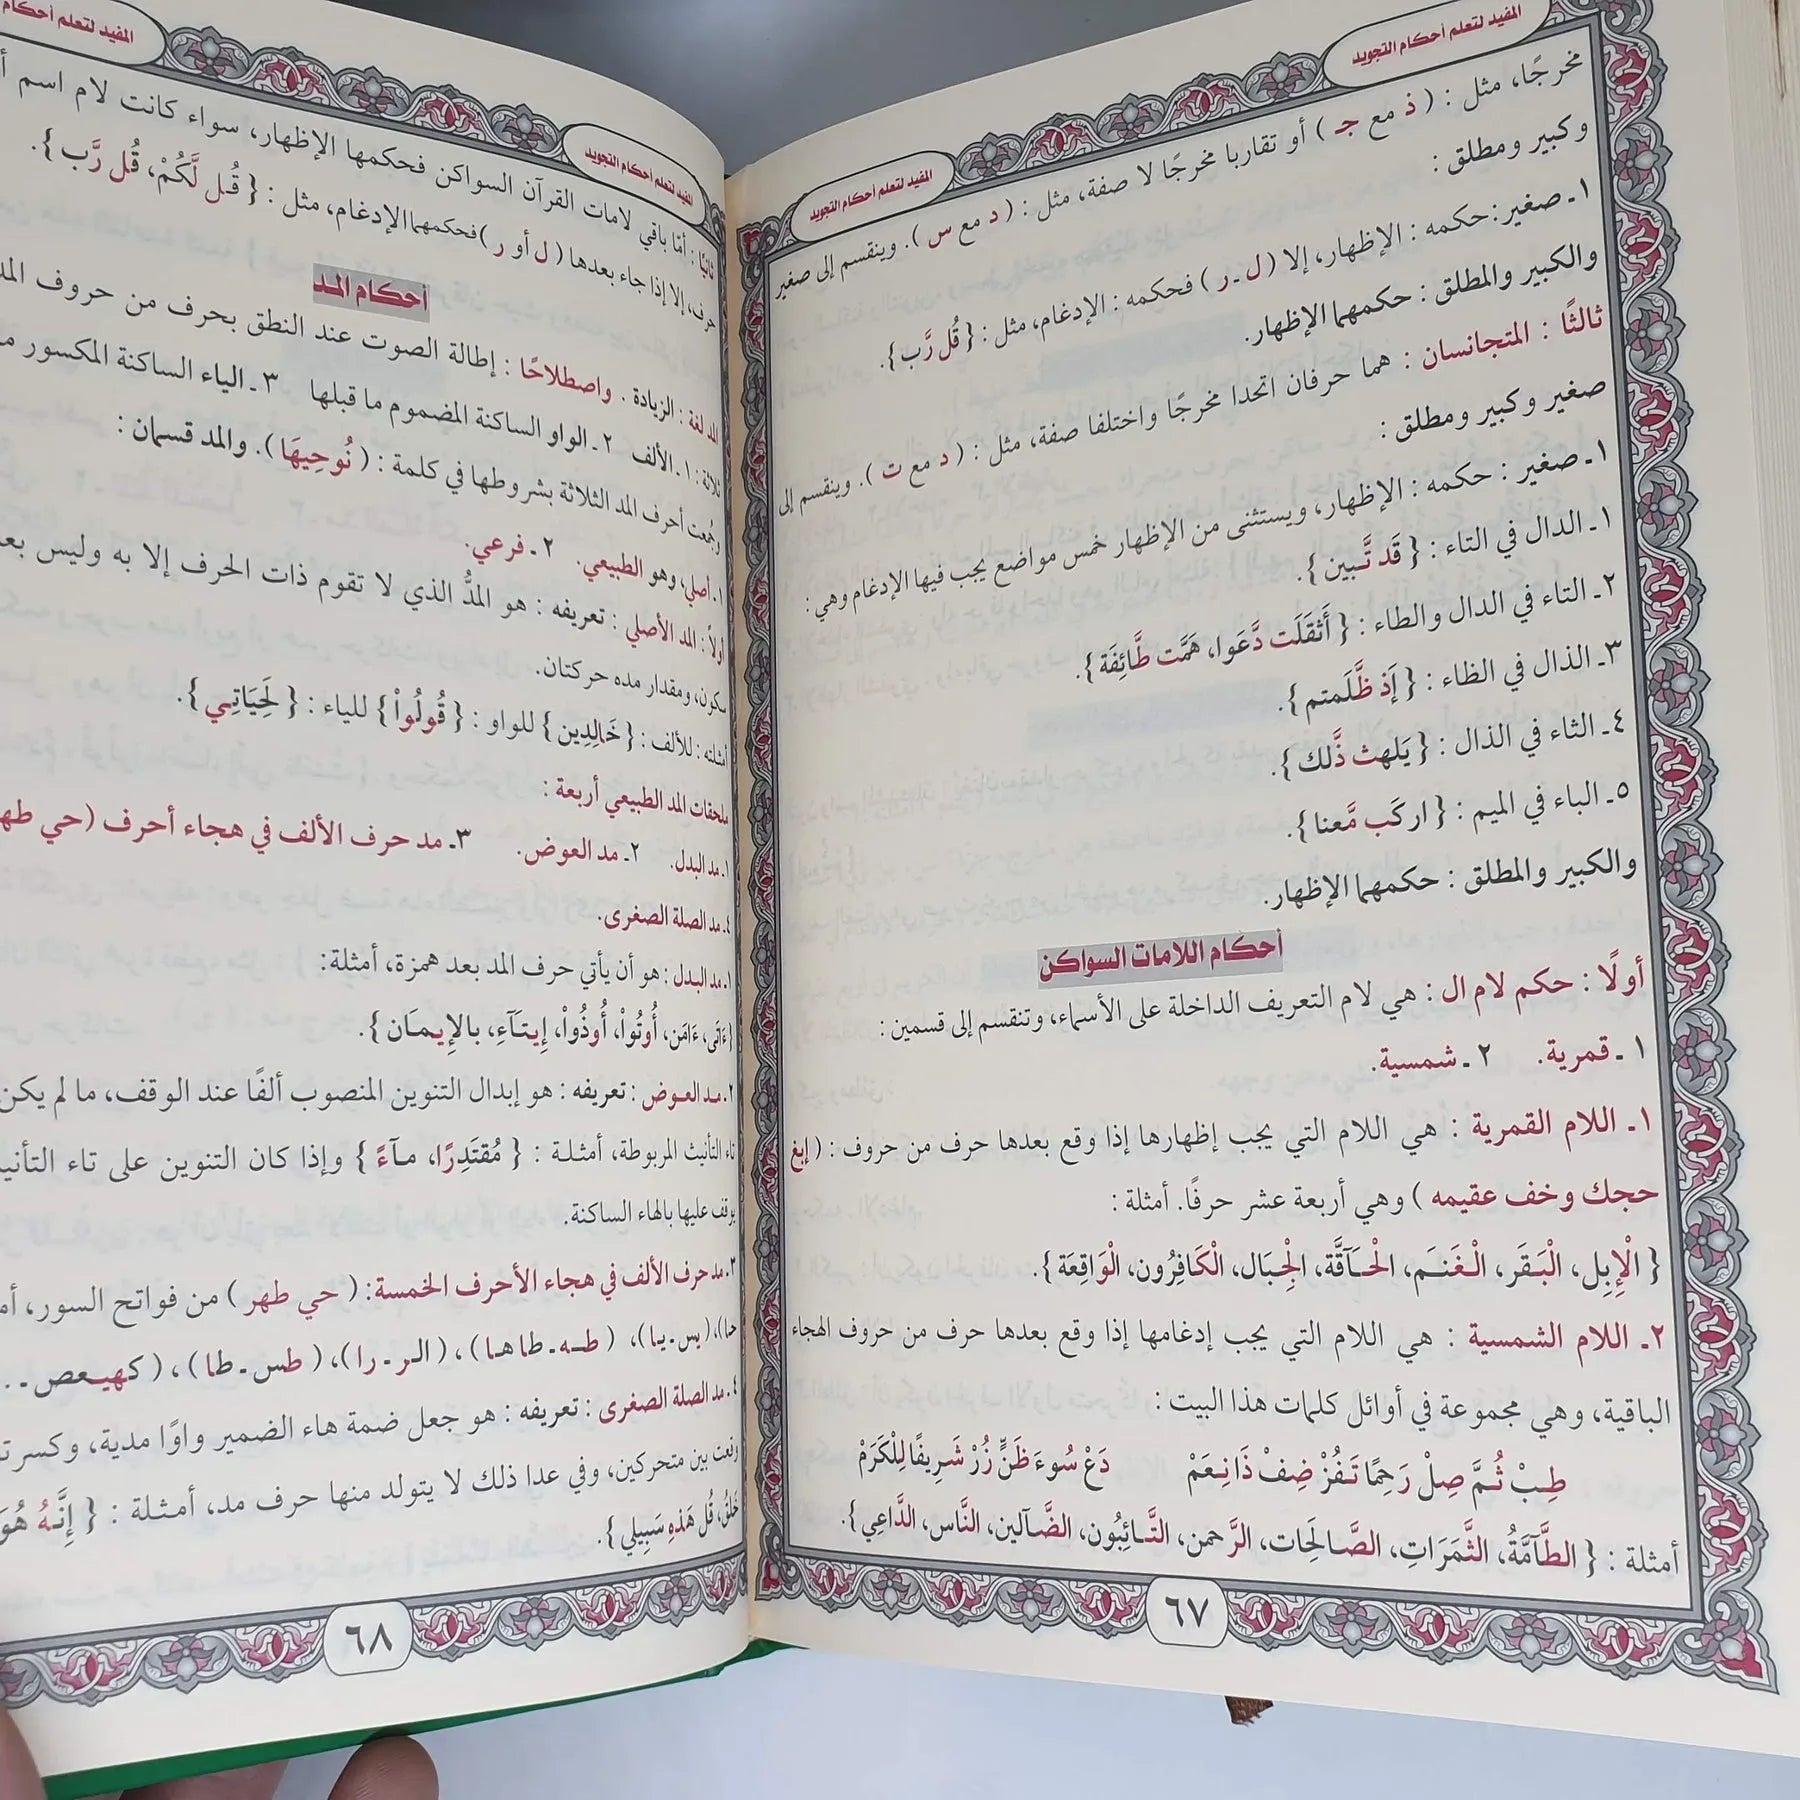 المفيد لتعلم أحكام التجويد
المفيد لتعلم أحكام التجويد
مخرجًا، مثل : ( ذ مع جـ ) أو تقاربا مخرجًا لا صفة، مثل : ( د مع س ). وينقسم إلى صغير
وكبير ومطلق :
١ـ صغير: حكمه : الإظهار، إلا ( ل ـ ر ) فحكمه : الإدغام، مثل : { قُل رَّب }.
والكبير والمطلق : حكمهما الإظهار.
ثالثًا : المتجانسان : هما حرفان اتحدا مخرجًا واختلفا صفة، مثل : ( د مع ت ). وينقسم إلى
صغير وكبير ومطلق :
١ـ صغير : حكمه : الإظهار، ويستثنى من الإظهار خمس مواضع يجب فيها الإدغام وهي :
١ـ الدال في التاء : { قَد تَّبين }.
٢ـ التاء في الدال والطاء : { أَثقَلَت دَّعَوا، هَمَّت طَّائِفَة }.
٣ـ الذال في الظاء : { إَذ ظَّلَمتم }.
٤ـ الثاء في الذال : { يَلهث ذَّلك }.
٥ـ الباء في الميم : { اركَب مَّعنا }.
والكبير والمطلق : حكمهما الإظهار.
أحكام اللامات السواكن
أولًا : حكم لام ال : هي لام التعريف الداخلة على الأسماء، وتنقسم إلى قسمين :
١ ـ قمرية. ٢ ـ شمسية.
١ـ اللام القمرية : هي اللام التي يجب إظهارها إذا وقع بعدها حرف من حروف : ( إبغ
حجك وخف عقيمه ) وهي أربعة عشر حرفًا. أمثلة :
{ الْإِبِل، الْبَقَر، الْغَنَم، الْحَآقَّة، الْجِبَال، الْكَافِرُون، الْوَاقِعَة }.
٢ـ اللام الشمسية : هي اللام التي يجب إدغامها إذا وقع بعدها حرف من حروف الهجاء
الباقية، وهي مجموعة في أوائل كلمات هذا البيت :
طِبْ ثُمَّ صِلْ رَحِمًا تَفُزْ ضِفْ ذَا نِعَمْ دَعْ سُوءَ ظَنٍّ زُرْ شَرِيفًا لِلْكَرَمْ
أمثلة : { الطَّآمَّةُ، الثَّمَرَاتِ، الصَّالِحَات، الرَّحمن، التَّائِبُون، الضَّآلين، النَّاس، الدَّاعِي }.
٦٧
المفيد لتعلم أحكام
المفيد لتعلم أحكام التجويد
ثانيًا : أمّا باقي لامات القرآن السواكن فحكمها الإظهار، سواء كانت لام اسم
حرف، إلا إذا جاء بعدها ( ل أو ر ) فحكمهما الإدغام، مثل : { قُل لَّكُمْ، قُل رَّب }.
أحكام المد
المد لغة : الزيادة . واصطلاحًا : إطالة الصوت عند النطق بحرف من حروف المد
ثلاثة : ١ـ الألف ٢ ـ الواو الساكنة المضموم ما قبلها ٣ ـ الياء الساكنة المكسور
وجُمعت أحرف المد الثلاثة بشروطها في كلمة : ( نُوحِيهَا ). والمد قسمان :
١ـ أصلي، وهو الطبيعي. ٢ ـ فرعي.
أولاً : المد الأصلي : تعريفه : هو المدُّ الذي لا تقوم ذات الحرف إلا به وليس
سكون، ومقدار مده حركتان.
أمثلته : للألف : { خَالِدِين } للواو : { قُولُواْ } للياء : { لَحِيَاتِي }.
ملحقات المد الطبيعي أربعة :
١ـ مد البدل. ٢ـ مد العوض. ٣ـ مد حرف الألف في هجاء أحرف (حي طهر
٤ـ مد الصلة الصغرى.
١ـ مد البدل : هو أن يأتي حرف المد بعد همزة، أمثلة:
{ ءَاتَى، ءَامَن، أُوتُواْ، أُوذُواْ، إِيتَآءِ، بالإِيمَان }.
٢ـ مد العوض : تعريفه : هو إبدال التنوين المنصوب ألفًا عند الوقف، ما لم يكن
تاء التأنيث المربوطة، أمثلة : { مُقتَدِرًا، مآءً } وإذا كان التنوين على تاء
يوقف عليها بالهاء الساكنة.
٣ـ مد حرف الألف في هجاء الأحرف الخمسة: ( حي طهر ) من فواتح السور،
حا)، (يس ـ يا)، ( طه ـ طا ها) ، ( الر ـ را )، ( طس ـ طا ) ، ( كهيعص ـ
٤ـ مد الصلة الصغرى : تعريفه : هو جعل ضمة هاء الضمير واوًا مدية،
وقعت بين متحركين، وفي عدا ذلك لا يتولد منها حرف مد، أمثلة : { إِنَّهُ هُوَ
خَلَقُ، قُل هَذِهِ سَبِيلِي }.
٦٨